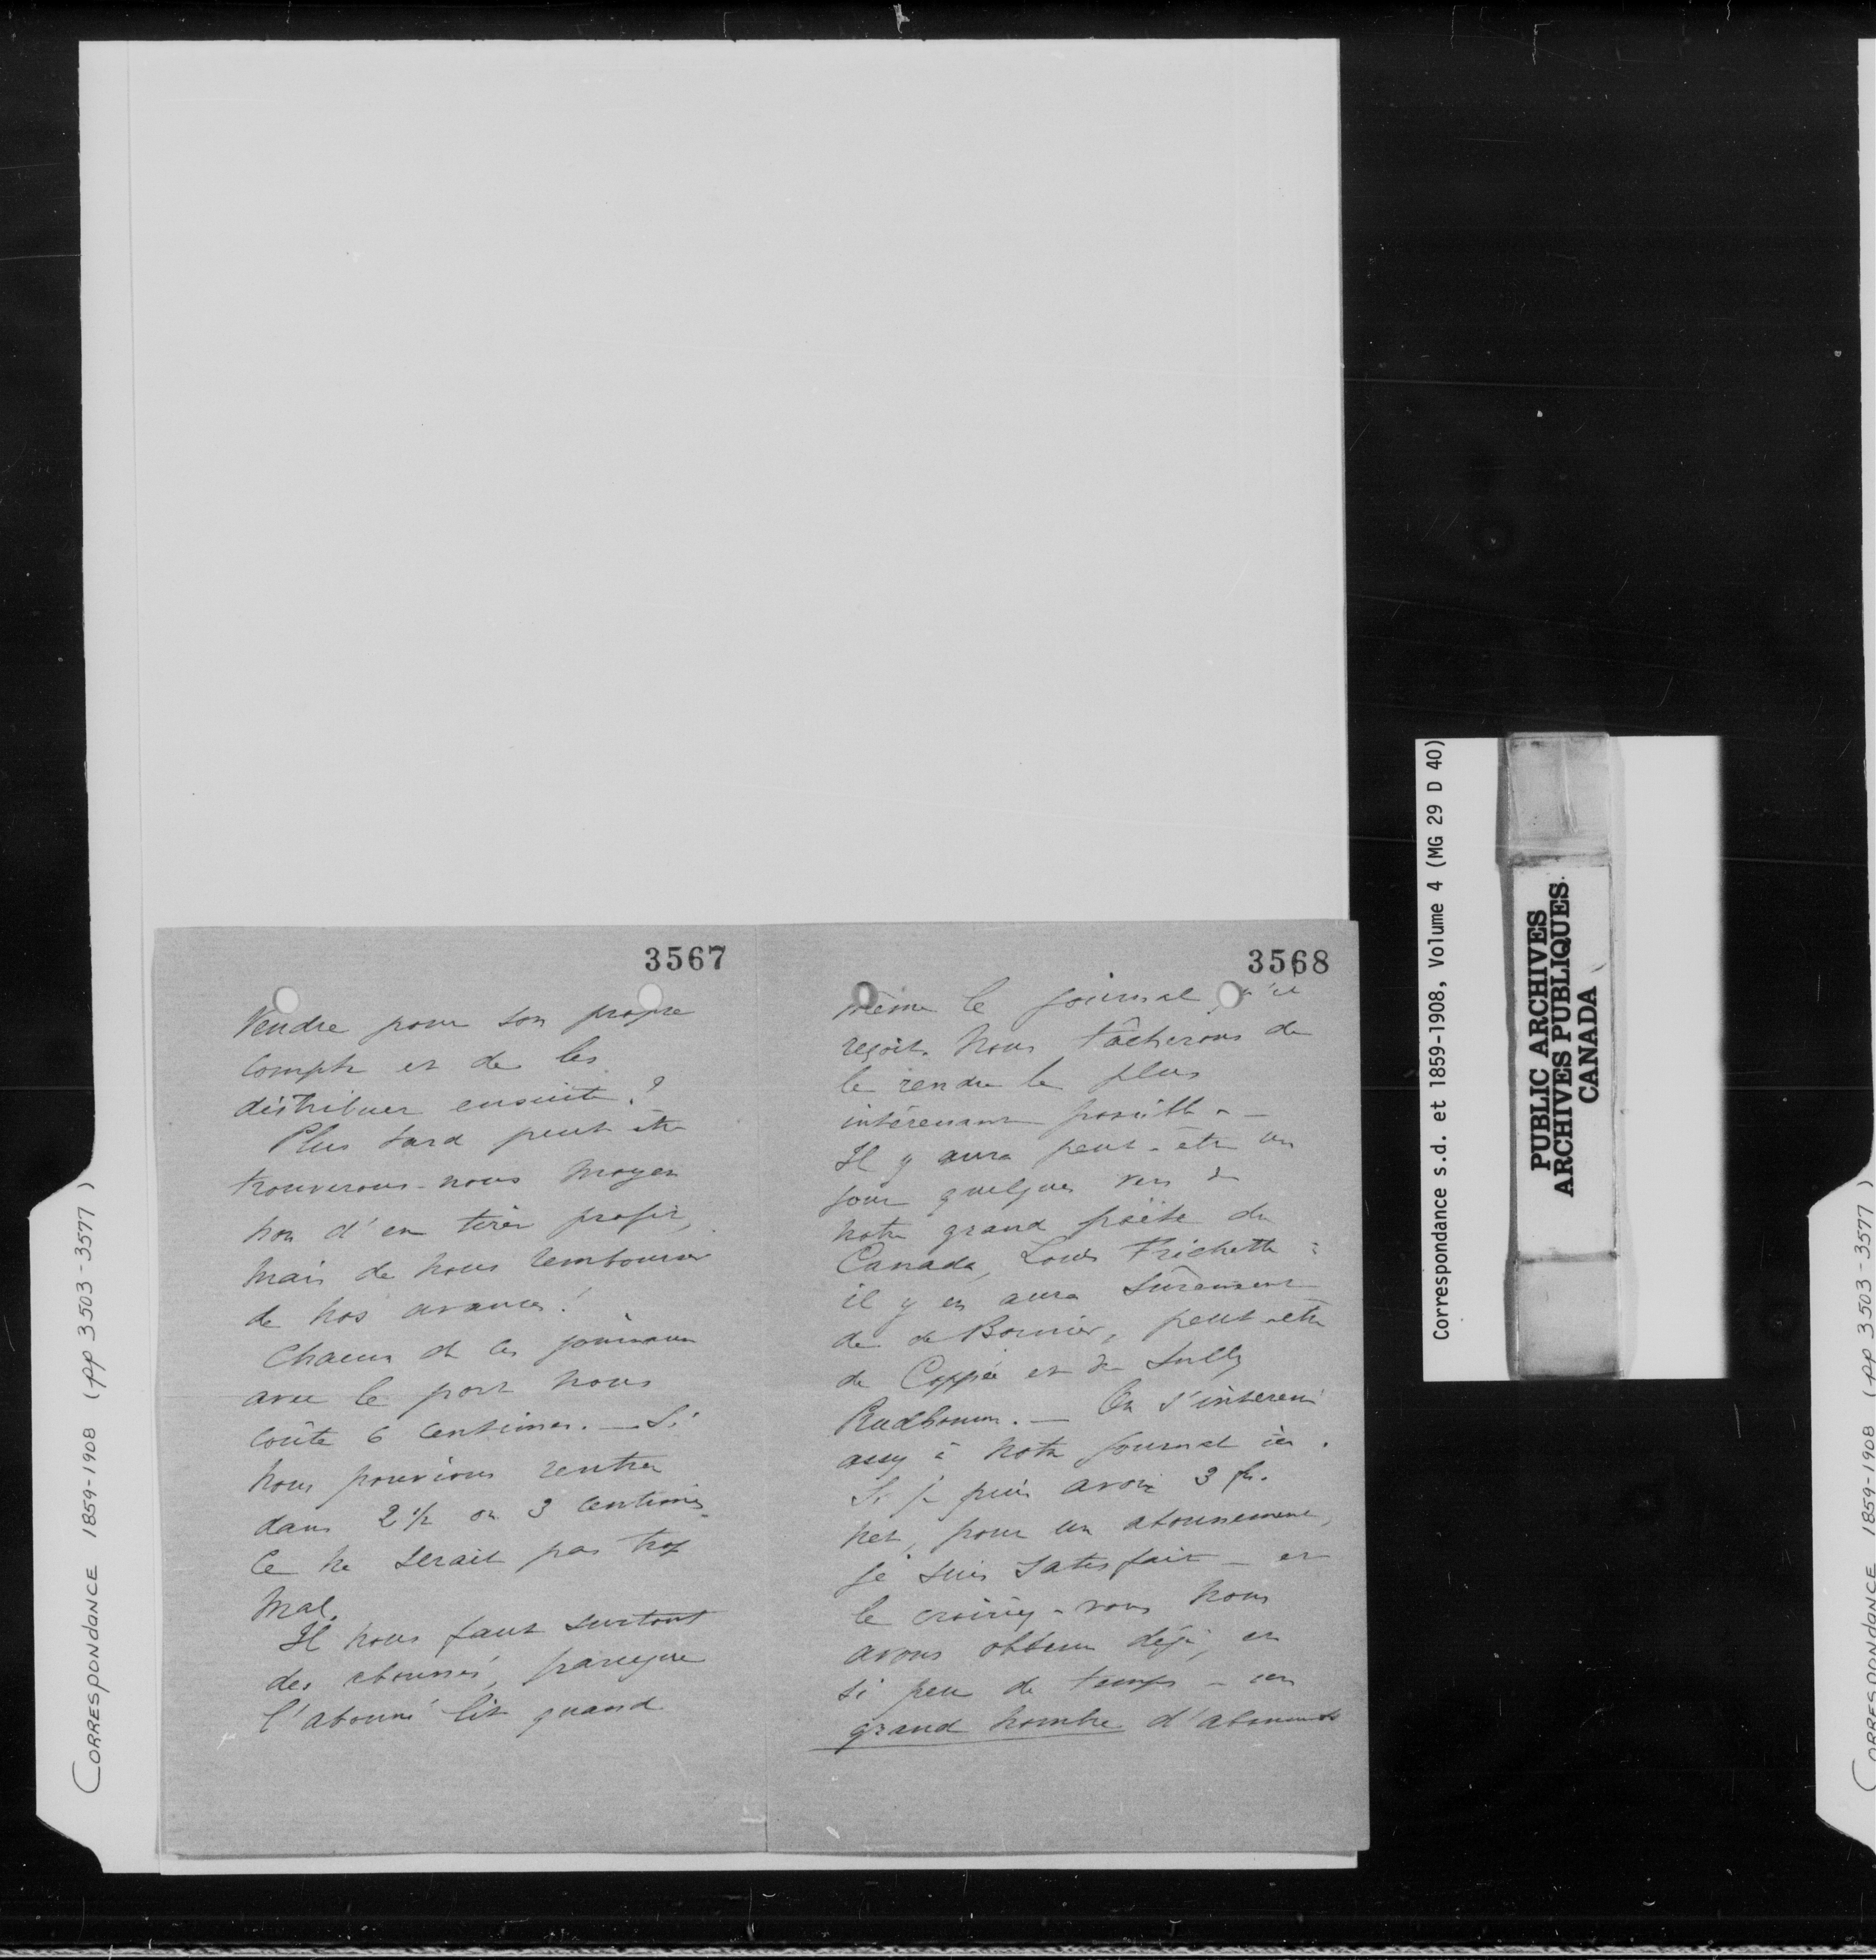 3567
Vendre pour son propre
compte et de les
distribuer ensuite ?
Plus tard peut être
trouverons-nous moyen
non d'en tirer profit,
mais de nous rembourser
de nos avances !
Chacun de ces journaux
avec le port nous
coûte 6 centimes. — Si
nous pouvions rentrer
dans 2 1/2 ou 3 centimes
ce ne serait pas trop
mal.
Il nous faut surtout
des abonnés, parceque
l'abonné lit quand
3568
même le journal qu'il
reçoit. Nous tâcherons de
le rendre le plus
intéressant possible —
Il y aura peut-être un
jour quelques vers de
notre grand poëte du
Canada, Louis Fréchette :
il y en aura sûrement
de de Bornier, peut-être
de Coppée et de Sully
Prudhomme. — On s'intéresse
assez à notre journal ici.
Si je puis avoir 3 fr.
net, pour un abonnement,
je suis satisfait — et
le croiriez-vous nous
avons obtenu déjà, en
si peu de temps — un
grand nombre d'abonnements
CORRESPONDANCE 1859-1908 (pp 3503-3577)
Correspondance s.d. et 1859-1908, Volume 4 (MG 29 D 40)
PUBLIC ARCHIVES
ARCHIVES PUBLIQUES
CANADA
CORRESPONDANCE 1859-1908 (pp 3503-3577)